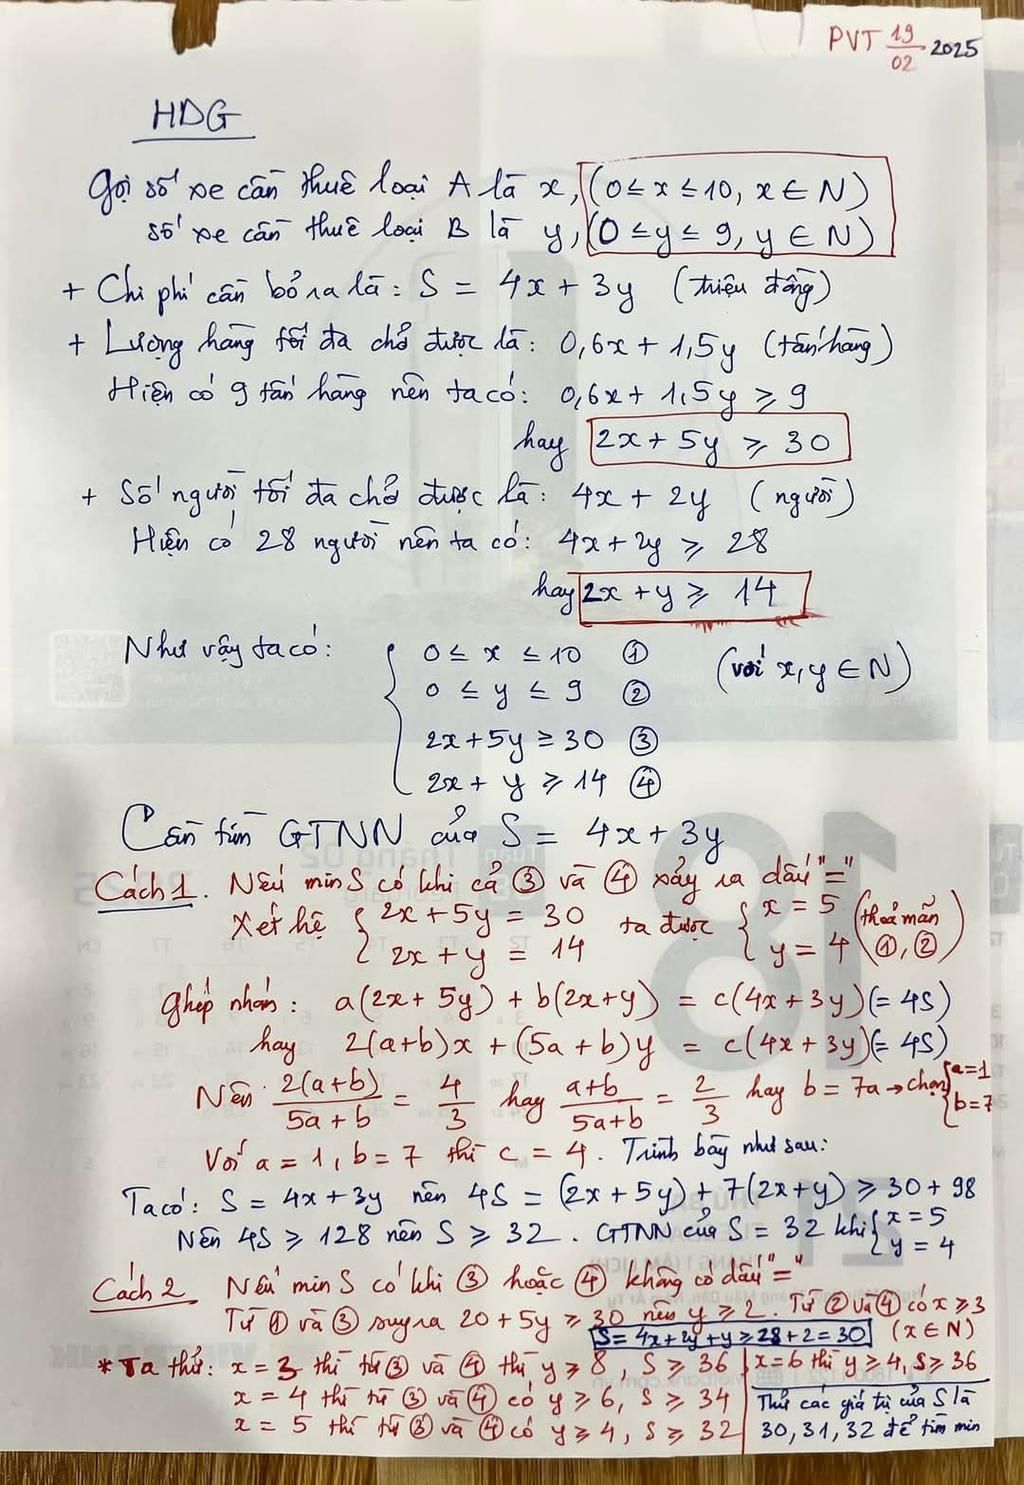 PVT 19/02 2025
HDG
Gọi số xe cần thuê loại A là x, (0 ≤ x ≤ 10, x ∈ N)
số xe cần thuê loại B là y, (0 ≤ y ≤ 9, y ∈ N)
+ Chi phí cần bỏ ra là: S = 4x + 3y (triệu đồng)
+ Lượng hàng tối đa chở được là: 0,6x + 1,5y (tấn hàng)
Hiện có 9 tấn hàng nên ta có: 0,6x + 1,5y ≥ 9
hay 2x + 5y ≥ 30
+ Số người tối đa chở được là: 4x + 2y (người)
Hiện có 28 người nên ta có: 4x + 2y ≥ 28
hay 2x + y ≥ 14
Như vậy ta có: { 0 ≤ x ≤ 10 ① (với x, y ∈ N)
0 ≤ y ≤ 9 ②
2x + 5y ≥ 30 ③
2x + y ≥ 14 ④
Cần tìm GTNN của S = 4x + 3y
Cách 1. Nếu min S có khi cả ③ và ④ xảy ra dấu "="
Xét hệ { 2x + 5y = 30 ta được { x = 5 (thoả mãn
2x + y = 14 y = 4 ①, ②)
Ghép nhóm: a(2x + 5y) + b(2x + y) = c(4x + 3y) (= 4S)
hay 2(a+b)x + (5a + b)y = c(4x + 3y) (= 4S)
Nên 2(a+b)/5a + b = 4/3 hay a+b/5a+b = 2/3 hay b = 7a → chọn { a=1 b=7
Với a = 1, b = 7 thì c = 4. Trình bày như sau:
Ta có: S = 4x + 3y nên 4S = (2x + 5y) + 7(2x + y) ≥ 30 + 98
Nên 4S ≥ 128 nên S ≥ 32. GTNN của S = 32 khi { x = 5 y = 4
Cách 2 Nếu min S có khi ③ hoặc ④ không có dấu "="
Từ ① và ③ suy ra 20 + 5y ≥ 30 nên y ≥ 2. Từ ② và ④ có x ≥ 3
S = 4x + 2y + y ≥ 28 + 2 = 30 (x ∈ N)
* Ta thử: x = 3 thì từ ③ và ④ thì y ≥ 8, S ≥ 36
x = 4 thì từ ③ và ④ có y ≥ 6, S ≥ 34
x = 5 thì từ ③ và ④ có y ≥ 4, S ≥ 32
x = 6 thì y ≥ 4, S ≥ 36
Thử các giá trị của S là
30, 31, 32 để tìm min